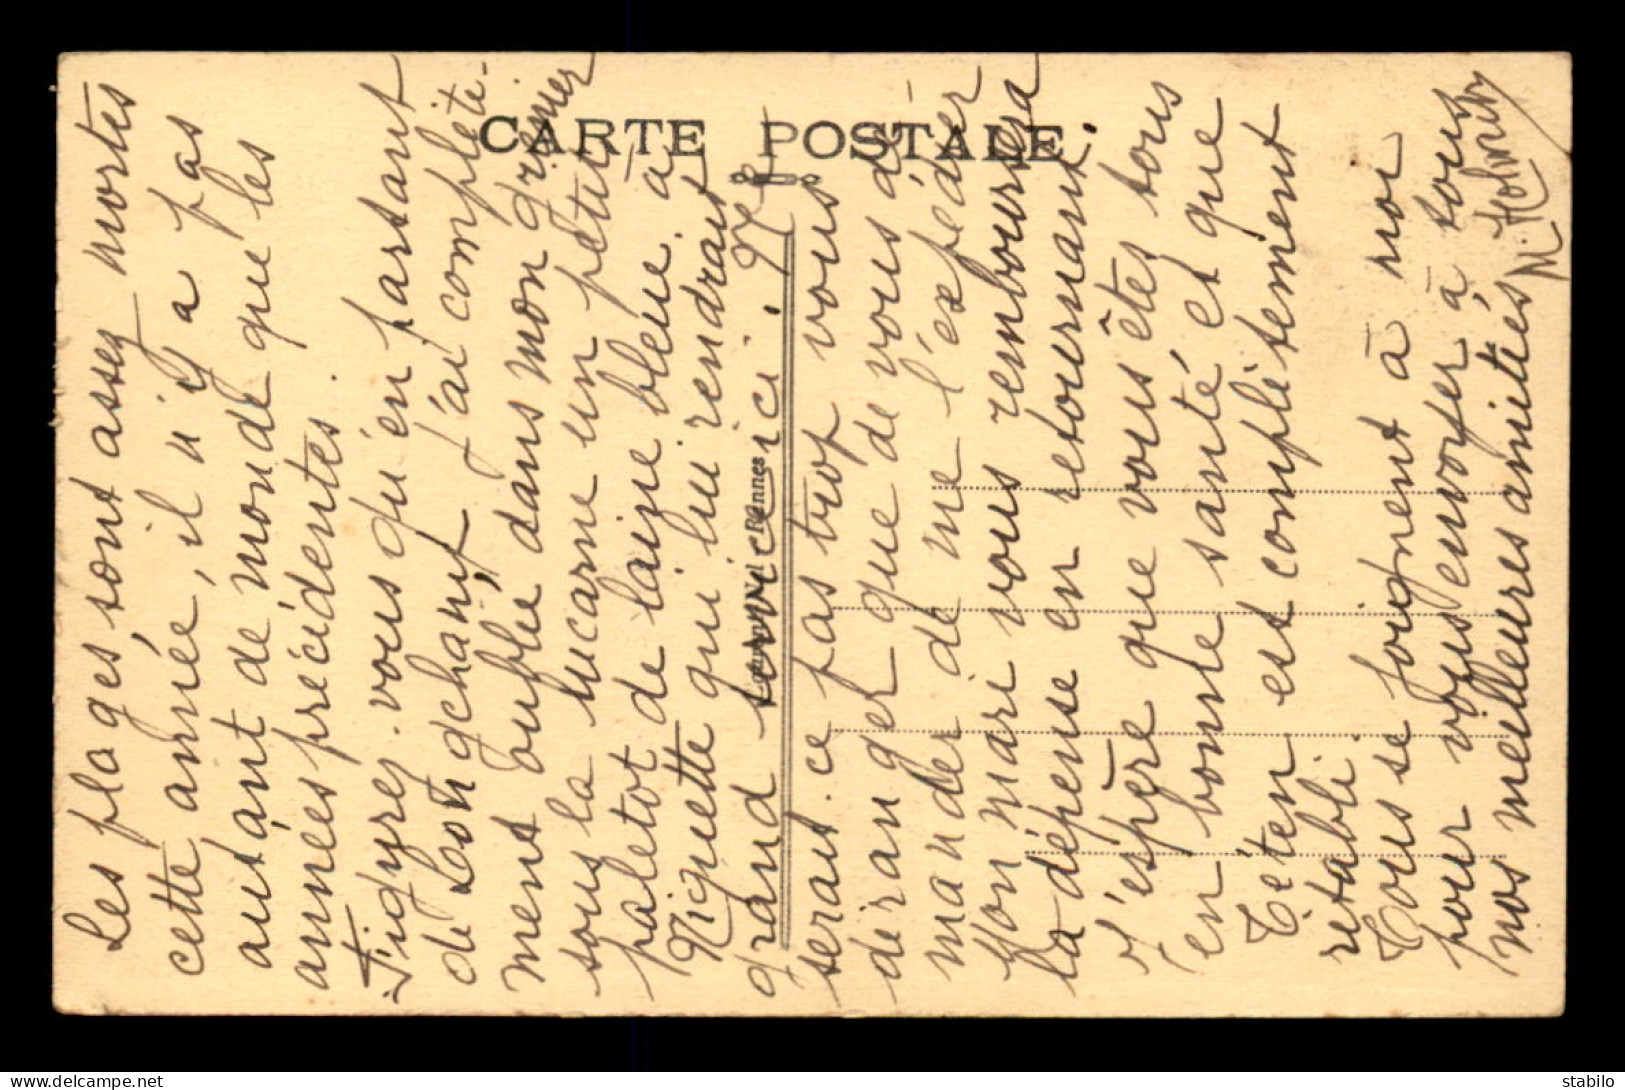 CARTE POSTALE
Les plages sont assez mortes
cette année, il n'y a pas
autant de monde que les
années précédentes.
Figurez-vous qu'en partant
de Longchamp, j'ai complète-
ment oublié dans mon grenier
sous la lucarne un petit
paletot de laine bleue à
Riquette qui lui rendrait
grand service ici. Ne
serait-ce pas trop vous
déranger que de vous de-
mander de me l'expédier
Mon mari vous remboursera
la dépense en retournant.
J'espère que vous êtes tous
en bonne santé et que
Téten est complètement
rétabli.
Tous se joignent à moi
pour vous envoyer à tous
nos meilleures amitiés
Rennes
delcampe.net
stabilo